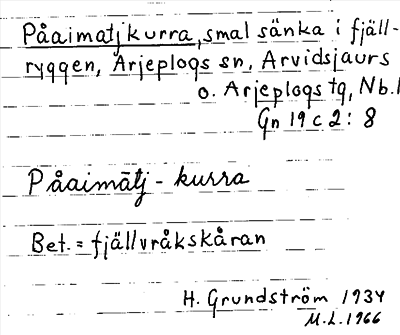 Påaimatjkurra, smal sänka i fjäll-
ryggen, Arjeplogs sn, Arvidsjaurs
o. Arjeplogs tg, Nb.l
Gn 19 c 2: 8
Påaimātj - kurra
Bet. = fjällvråkskåran
H. Grundström 1934
M.L. 1966